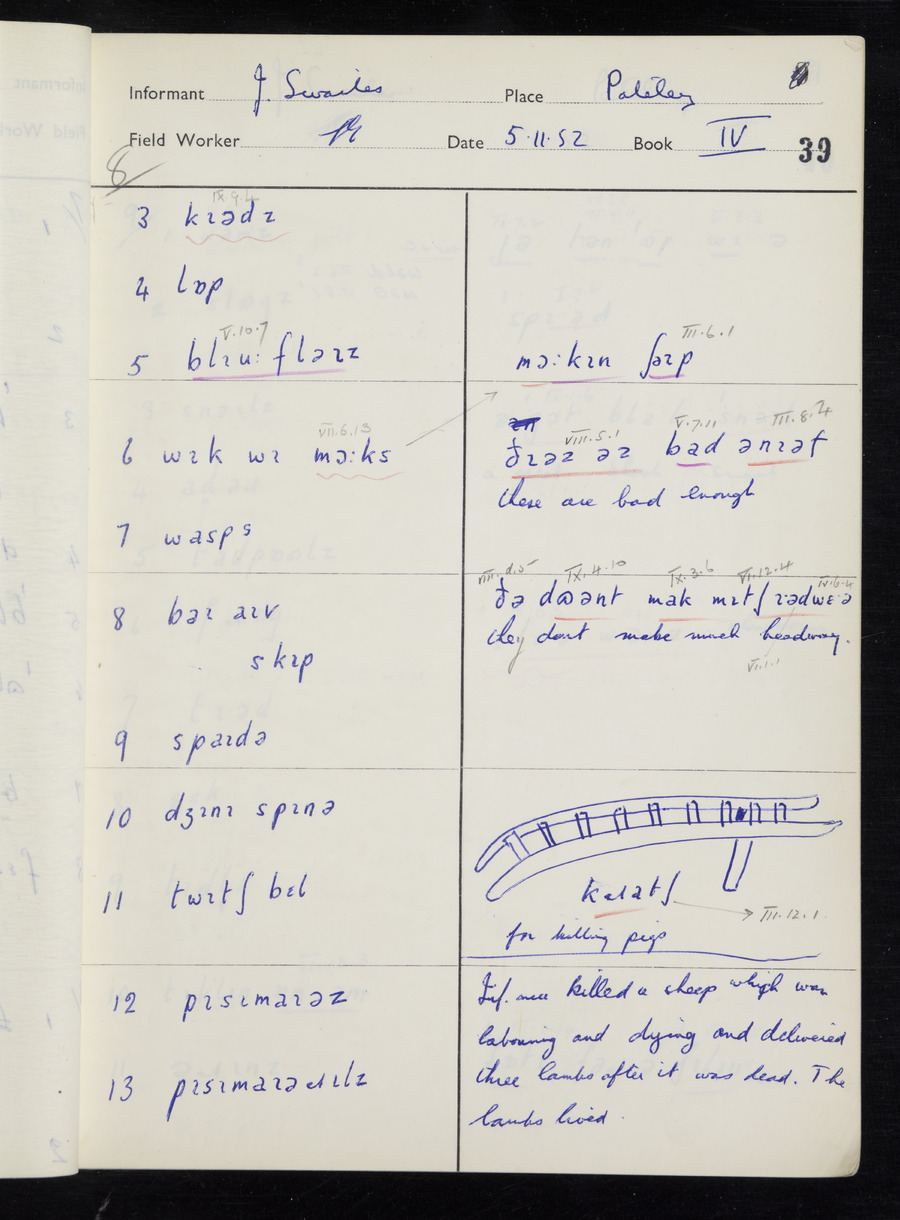 Informant J. Swailes Place Pateley
Field Worker Date 5.11.52 Book IV 39
8
IX.9.4
3 kɪədz
4 lɒp
V.10.7
5 blɪu: fləɪz
III.6.1
mə:kɪn ʃəɪp
VII.6.13
6 wɪk wɪ mə:ks
VIII.5.1 V.7.11 III.8.4
ðɪəz əz bad ənɪəf
these are bad enough
7 wasps
IX.4.10 IX.3.6 VI.12.4 IV.6.4
8 bəɪ aɪv
ðə dɒənt mak mɪtʃ ɪədwɛə
they dont make much headway.
VI.1.1
skɪp
9 spaɪdə
10 dʒɪnɪ spɪnə
11 twɪtʃ bɛl
kɹatʃ
III.12.1
for killing pigs
12 pɪsɪmaɪəz
13 pɪsɪmaɪəɹɪlz
Inf. once killed a sheep which was
labouring and dying and delivered
three lambs after it was dead. The
lambs lived.